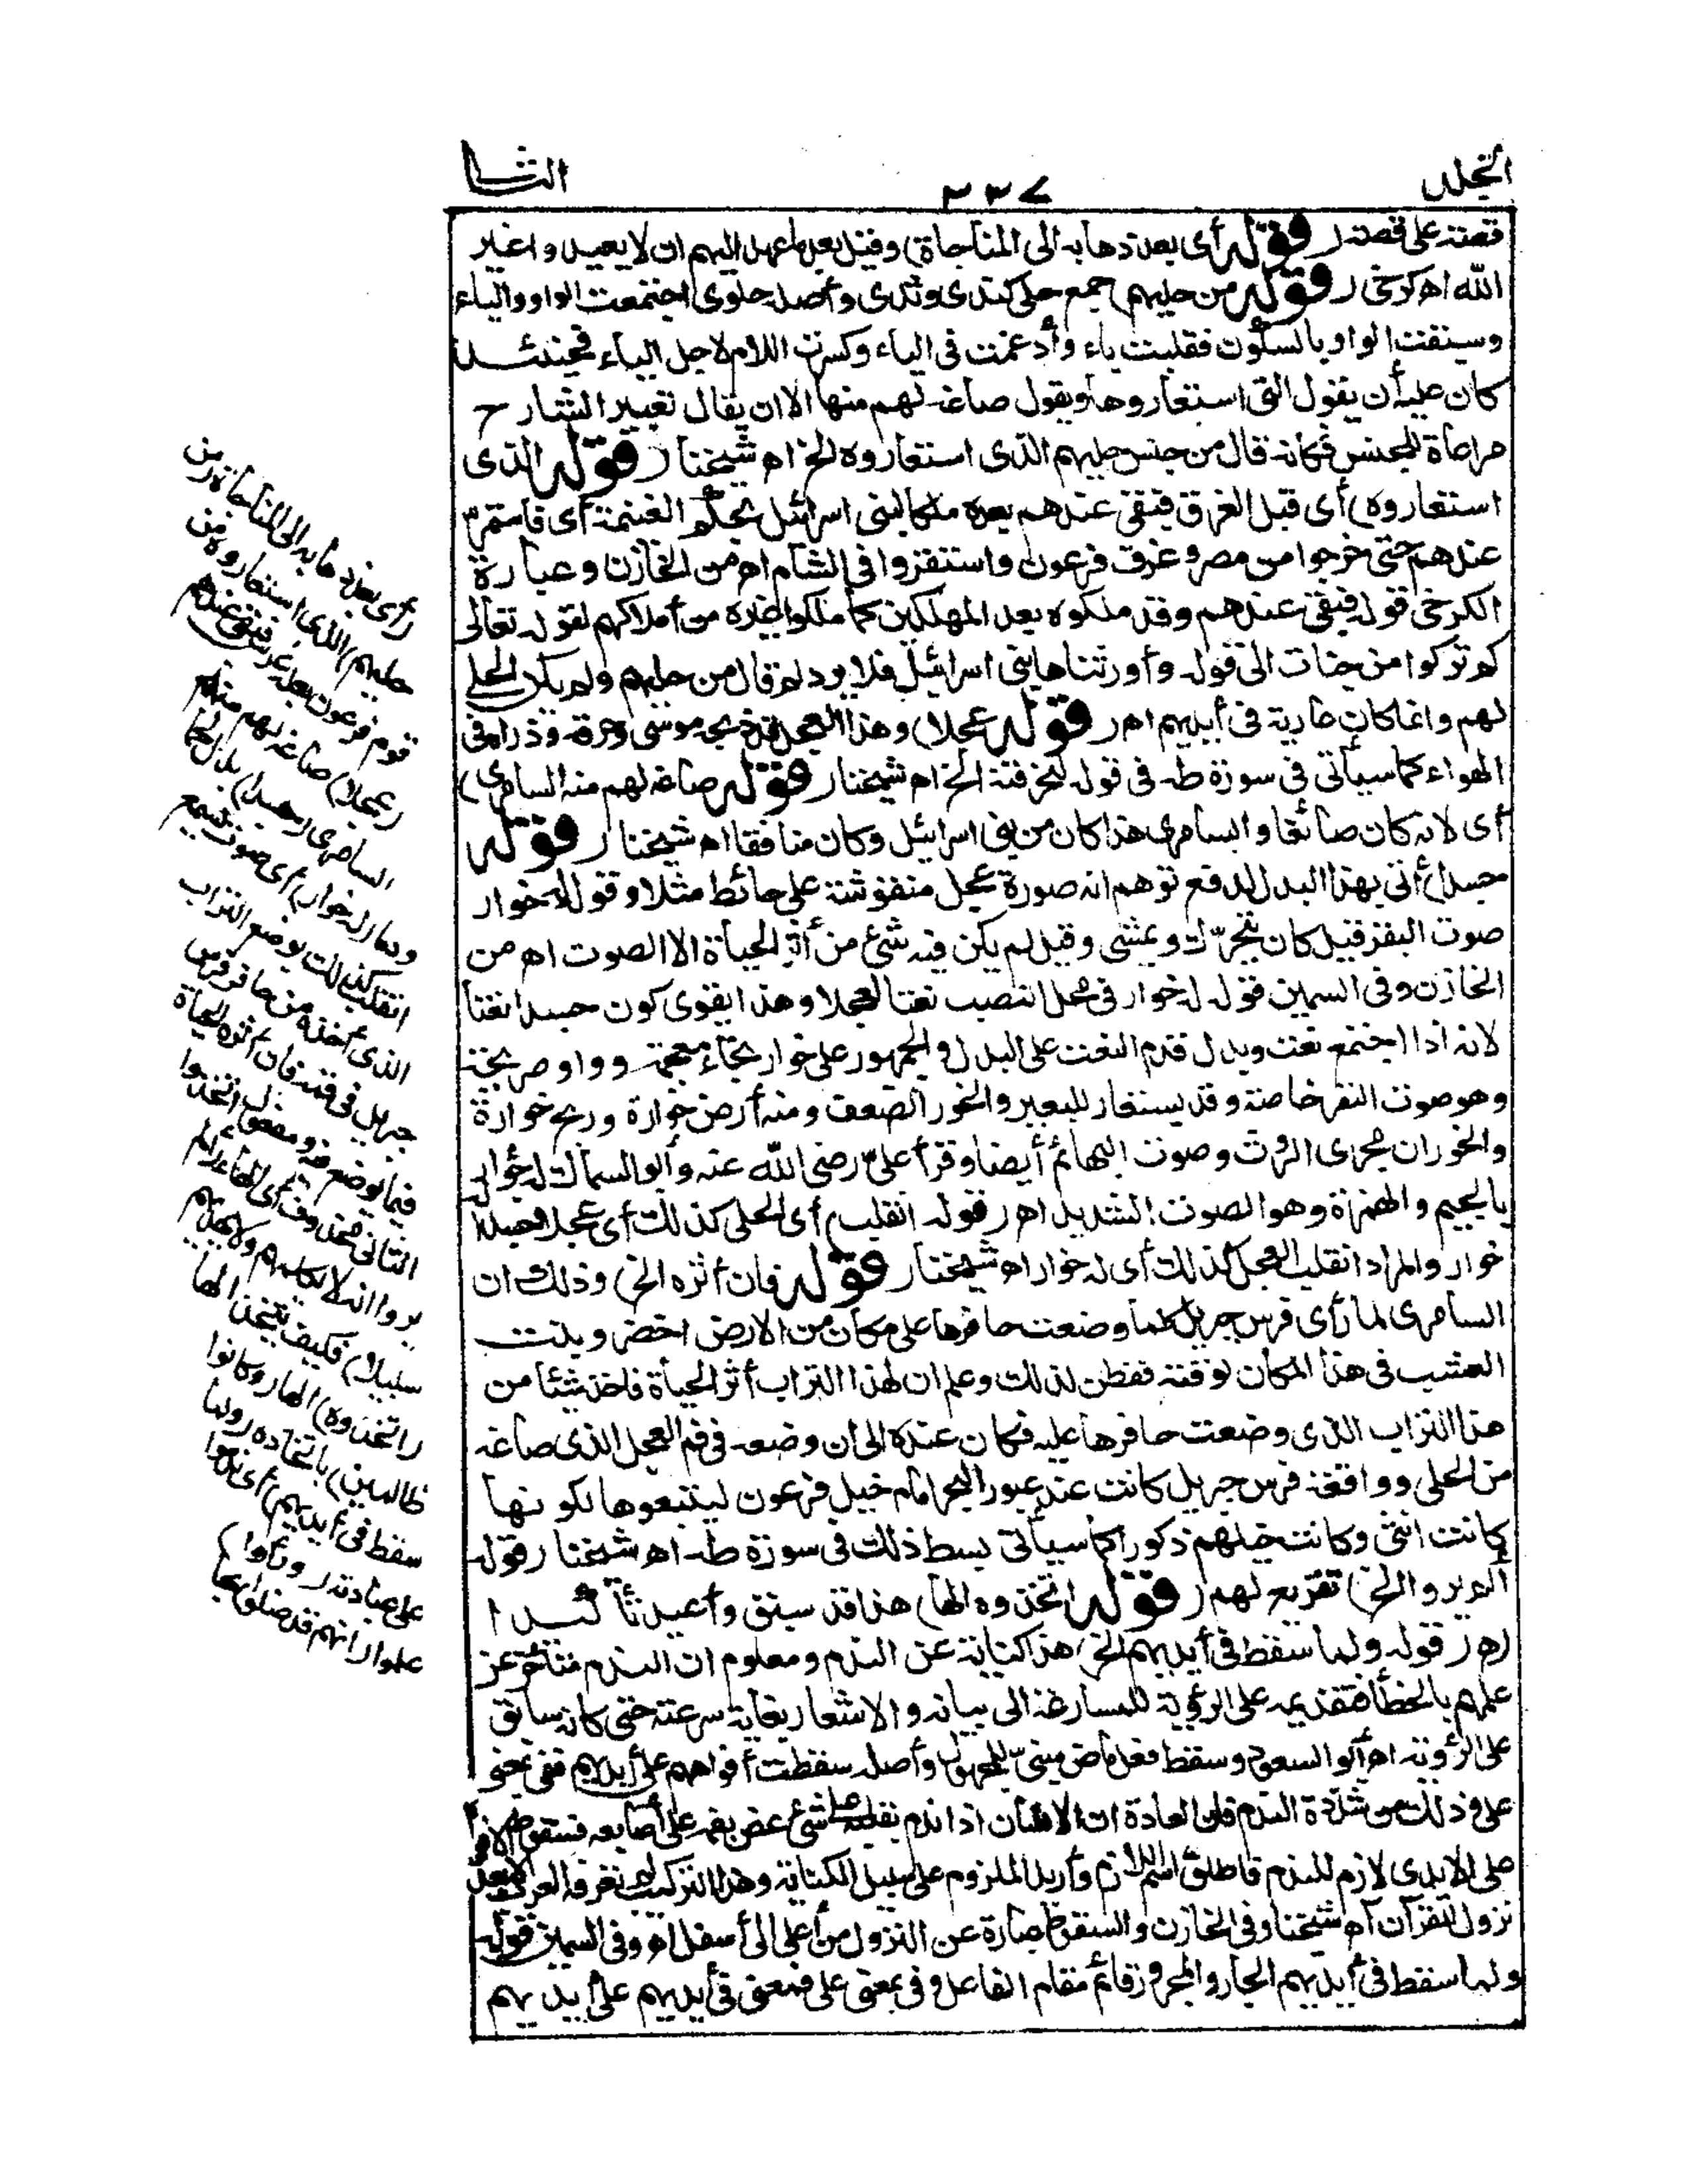 المجلد
٢٣٧
الثا
قصة على قصة (قوله أى بعد ذهابه الى المناجاة) وقيل بعد ما عهد اليهم ان لا يعبدوا غير
الله اه كرخى (قوله من حليهم) جمع حلى كثدى وثدى وأصله حلوى اجتمعت الواو والياء
وسبقت الواو بالسكون فقلبت ياء وأدغمت فى الياء وكسرت اللام لاجل الياء فحينئذ
كان عليه أن يقول التى استعاروها ويقول صاغه لهم منها الا ان يقال تعبير الشارح
مراعاة للجنس فكانه قال من جنس حليهم الذى استعاروه الخ اه شيخنا (قوله الذى
استعاروه) أى قبل الغرق فبقى عندهم بعده ملكا لبنى اسرائيل بحكم الغنيمة أى فاستمر
عندهم حتى خرجوا من مصر وغرق فرعون واستقروا فى الشام اه من الخازن وعبارة
الكرخى قوله فبقى عندهم وقد ملكوه بعد المهلكين كما ملكوا غيره من أملاكهم لقوله تعالى
كم تركوا من جنات الى قوله وأورثناها بنى اسرائيل فلا يرد لم قال من حليهم ولم يكن الحلى
لهم وانما كان عارية فى أيديهم اه (قوله عجلا) وهذا العجل قد ذبحه موسى وحرقه وذراه فى
الهواء كما سيأتى فى سورة طه فى قوله لنحرقنه الخ اه شيخنا (قوله صاغه لهم منه السامرى)
أى لانه كان صائغا والسامرى هذا كان من بنى اسرائيل وكان منافقا اه شيخنا (قوله
جسدا) أتى بهذا البدل لدفع توهم انه صورة عجل منقوشة على حائط مثلا وقوله له خوار
صوت البقر قيل كان يتحرك ويمشى وقيل لم يكن فيه شئ من أثر الحياة الا الصوت اه من
الخازن وفى السمين قوله له خوار فى محل النصب نعتا لعجلا وهذا يقوى كون جسدا نعتا
لانه اذا اجتمع نعت وبدل قدم النعت على البدل والجمهور على خوار بخاء معجمة وواو صريحة
وهو صوت البقر خاصة وقد يستعار للبعير والخور الضعف ومنه أرض خوارة ورمح خوارة
والخوران مجرى الروث وصوت البهائم أيضا وقرأ على رضى الله عنه وأبو السمال له جؤار
بالجيم والهمزة وهو الصوت الشديد اه (قوله انقلب) أى الحلى كذلك أى عجلا جسدا له
خوار والمراد انقلب العجل كذلك أى له خوار اه شيخنا (قوله فان أثره الخ) وذلك ان
السامرى لما رأى فرس جبريل كلما وضعت حافرها على مكان من الارض اخضر وينبت
العشب فى هذا المكان لوقته ففطن لذلك وعلم ان لهذا التراب أثر الحياة فاخذ شيئا من
هذا التراب الذى وضعت حافرها عليه فكان عنده الى ان وضعه فى فم العجل الذى صاغه
من الحلى وواقعة فرس جبريل كانت عند عبور البحر امام خيل فرعون ليتبعوها لكونها
كانت انثى وكانت خيلهم ذكورا كما سيأتى بسط ذلك فى سورة طه اه شيخنا (قوله
ألم يروا الخ) تقريع لهم (قوله اتخذوه الها) هذا قد سبق وأعيد تأكيدا
اه (قوله ولما سقط فى أيديهم الخ) هذا كناية عن الندم ومعلوم ان الندم متأخر عن
علمهم بالخطأ فتقديمه على الرؤية للمسارعة الى بيانه والاشعار بغاية سرعته حتى كانه سابق
على الرؤية اه أبو السعود وسقط فعل ماض مبنى للمجهول وأصله سقطت أفواههم على أيديهم ففى بمعنى
على وذلك من شدة الندم فان العادة ان الانسان اذا ندم بقلبه على شئ عض بفمه على أصابعه فسقوط الافواه
على الايدى لازم للندم فاطلق اسم اللازم وأريد الملزوم على سبيل الكناية وهذا التركيب لم تعرفه العرب الا بعد
نزول القرآن اه شيخنا وفى الخازن والسقوط عبارة عن النزول من أعلى الى أسفل اه وفى السمين قوله
ولما سقط فى أيديهم الجار والمجرور قائم مقام الفاعل وفى بمعنى على فمعنى فى أيديهم على أيديهم
أى بعد ذهابه الى المناجاة (من
حليهم) الذى استعاروه من
قوم فرعون بعلة عرس فبقى عندهم
(عجلا) صاغه لهم منه
السامرى (جسدا) بدل لحما
ودما (له خوار) أى صوت يسمع
انقلب كذلك بوضع التراب
الذى أخذه من حافر فرس
جبريل فى فمه فان أثره الحياة
فيما يوضع فيه ومفعول اتخذوا
الثانى محذوف أى الها (ألم
يروا انه لا يكلمهم ولا يهديهم
سبيلا) فكيف يتخذ الها
(اتخذوه) الها (وكانوا
ظالمين) باتخاذه (ولما
سقط فى أيديهم) أى ندموا
على عبادته (ورأوا)
علموا (انهم قد ضلوا) بها